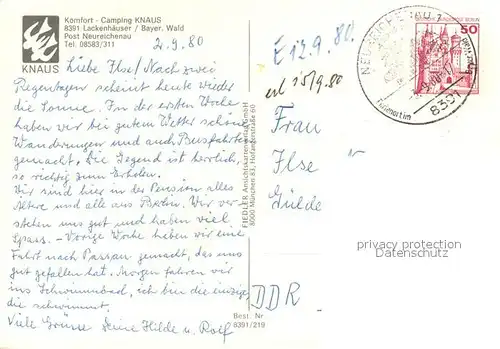 Komfort - Camping KNAUS
8391 Lackenhäuser / Bayer. Wald
Post Neureichenau
Tel. 08583/311
KNAUS
2.9.80
Liebe Ilse! Nach zwei
Regentagen scheint heute wieder
die Sonne. In der ersten Woche
haben wir bei gutem Wetter schöne
Wanderungen und auch Busfahrten
gemacht. Die Gegend ist herrlich,
so richtig zum Erholen.
Wir sind hier in der Pension alles
Ältere und alle aus Berlin. Wir ver-
stehen uns gut und haben viel
Spass. - Vorige Woche haben wir eine
Fahrt nach Passau gemacht, das uns
gut gefallen hat. Morgen fahren wir
ins Schwimmbad, ich bin die einzige,
die schwimmt.
Viele Grüsse Deine Hilde u. Rolf
FIEDLER Ansichtskartenverlag GmbH
8000 München 83, Hofangerstraße 60
Best. Nr
8391/219
E 12.9.80.
erl 15/9.80
Frau
Ilse
Gülde
DDR
NEUREICHENAU 1
839
DEUTSCHE BUNDESPOST BERLIN
50
PFAUENINSEL BERLIN
Profil-Foto-Marburg